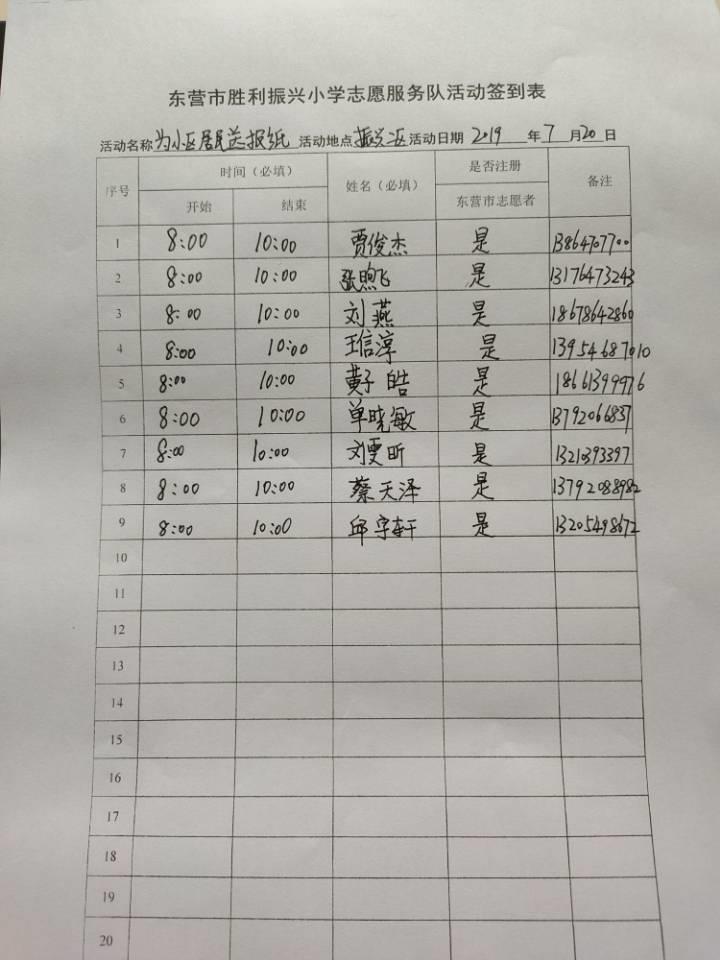 东营市胜利振兴小学志愿服务队活动签到表
活动名称 为小区居民送报纸 活动地点 振兴区 活动日期 2019 年 7 月 20 日
序号 时间（必填） 姓名（必填） 是否注册 备注
开始 结束 东营市志愿者
1 8:00 10:00 贾俊杰 是 13864707700
2 8:00 10:00 张煦飞 是 13176473243
3 8:00 10:00 刘燕 是 18678642860
4 8:00 10:00 王信淳 是 13954687010
5 8:00 10:00 黄子皓 是 18661399976
6 8:00 10:00 单晓敏 是 13792066837
7 8:00 10:00 刘雯昕 是 13210393397
8 8:00 10:00 蔡天泽 是 13792088982
9 8:00 10:00 邱宇轩 是 13205498672
10
11
12
13
14
15
16
17
18
19
20